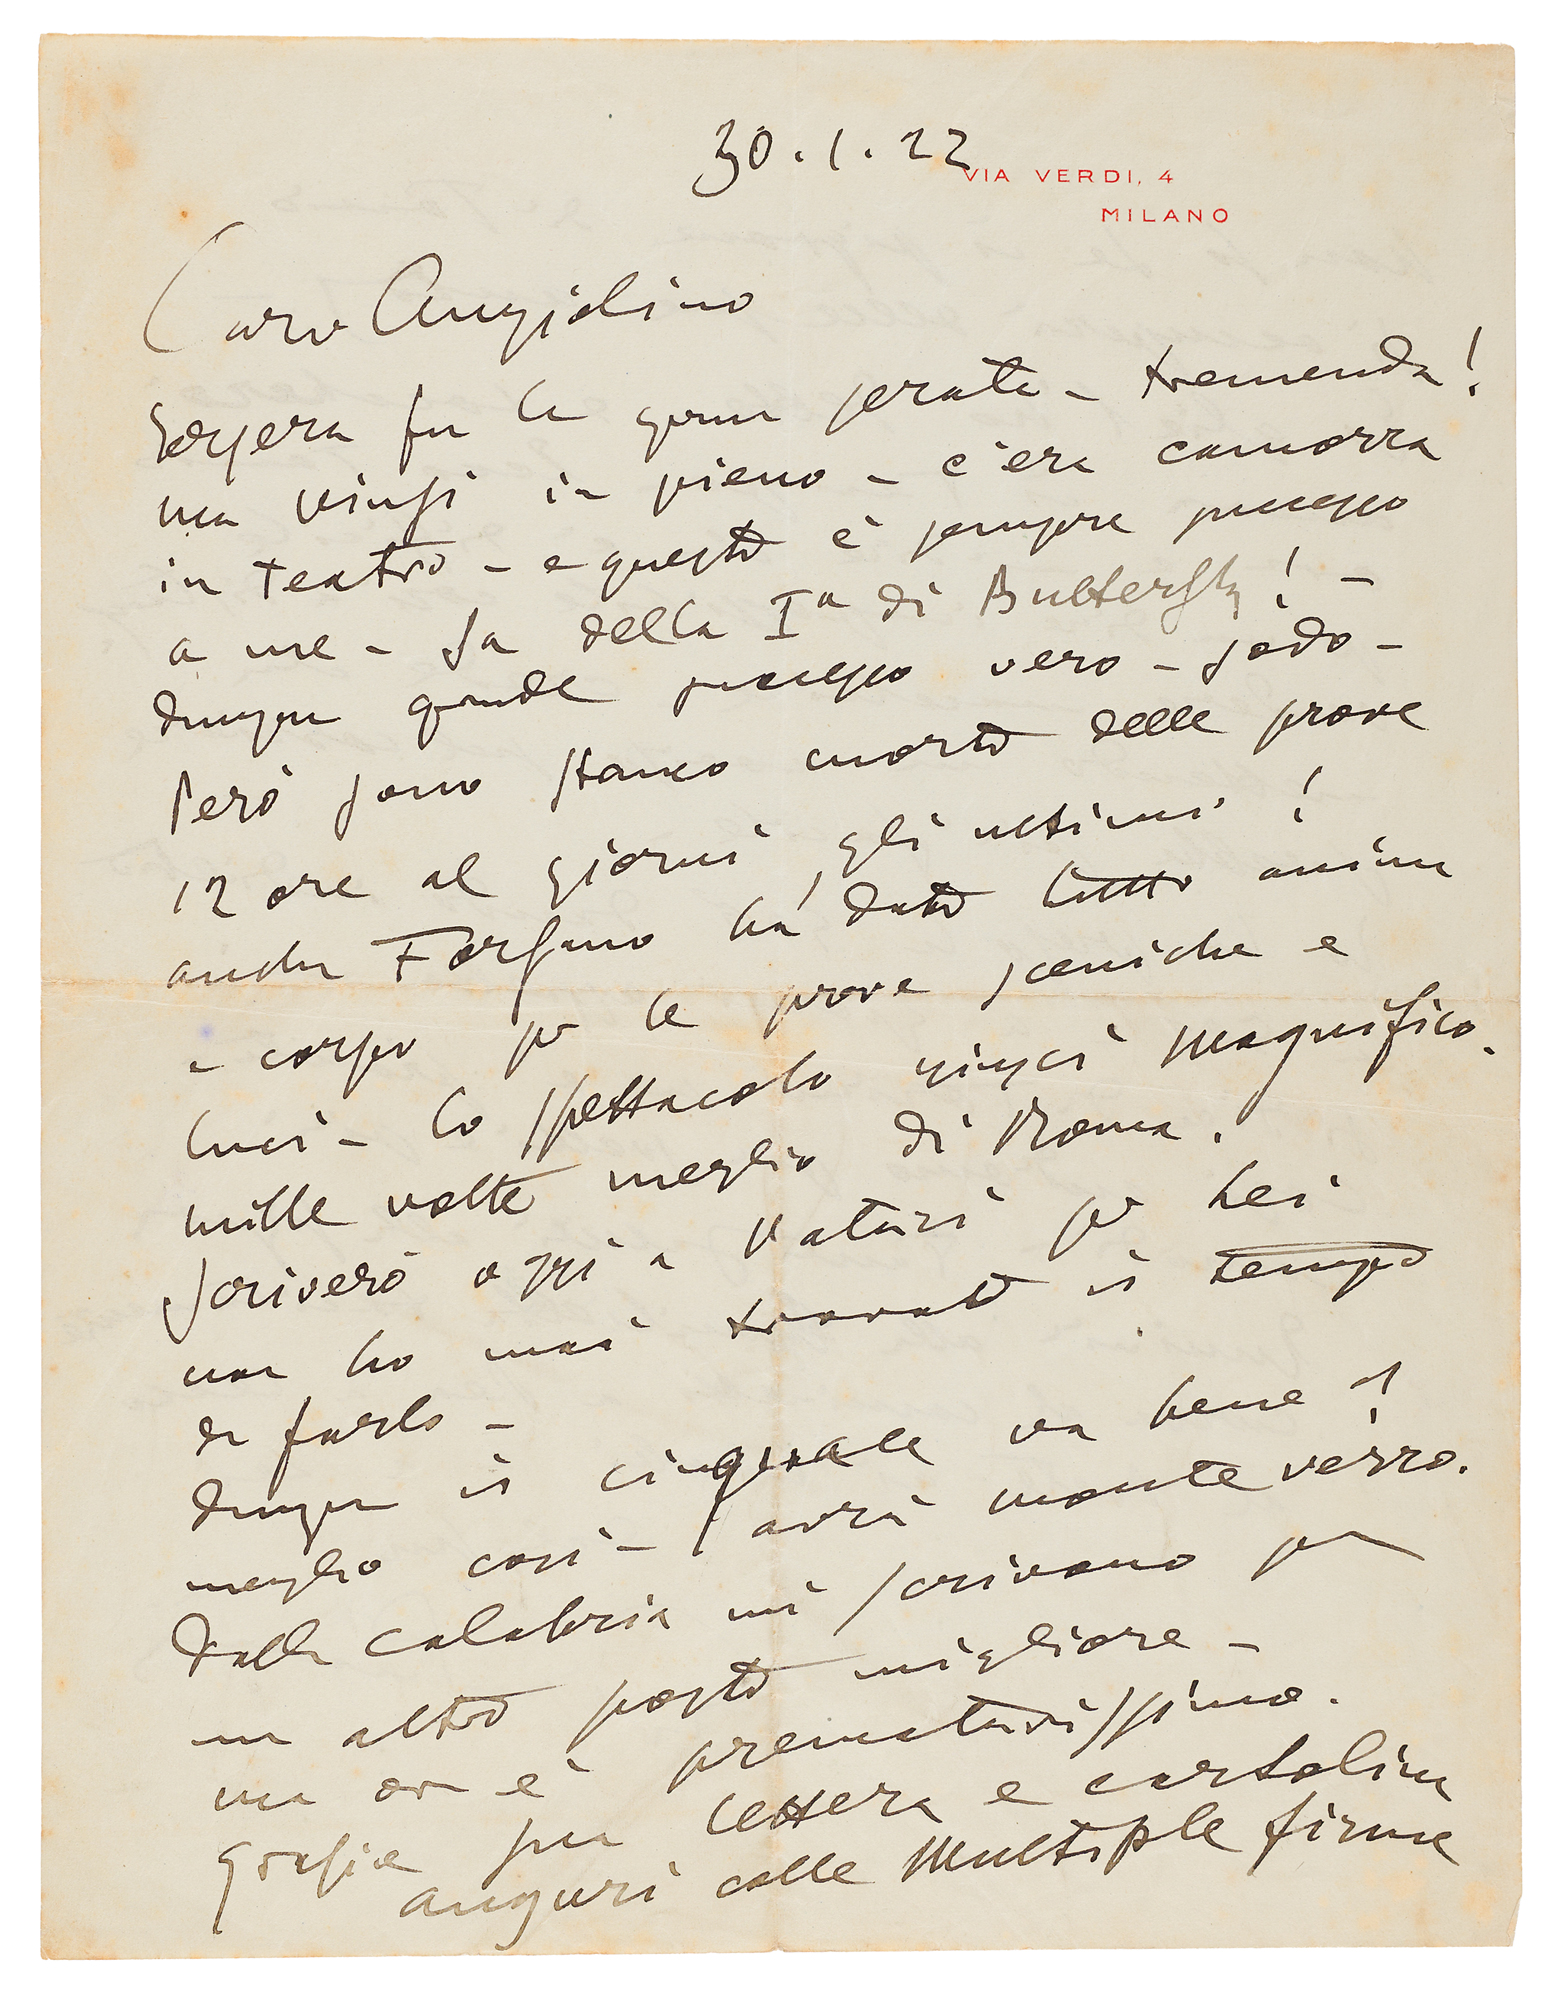 30.1.22
VIA VERDI, 4
MILANO
Caro Angiolino
Iersera fu la gran serata - tremenda!
ma vinsi in pieno - c'era camorra
in teatro - e questo è sempre successo
a me - fa della Iª di Butterfly! -
dunque grande successo vero - sodo -
Però sono stanco morto delle prove
12 ore al giorni gli ultimi!
anche Forzano há dato tutto anima
e corpo per le prove sceniche e
luci - lo spettacolo riuscì magnifico.
mille volte meglio di Roma.
Scriverò oggi a per Lei
non ho mai trovato il tempo
di farlo -
dunque il cinquale va bene?
meglio così - avrà monte verro.
dalla calabria mi scrivono per
un altro posto migliore -
ma or è prematurissimo.
Grazie per lettera e cartolina
auguri colle multiple firme